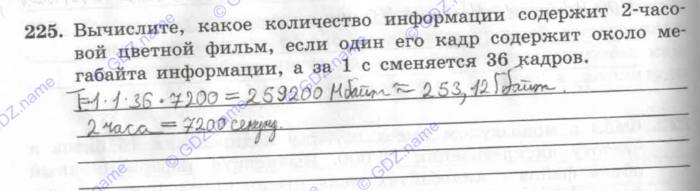 225. Вычислите, какое количество информации содержит 2-часо-
вой цветной фильм, если один его кадр содержит около ме-
габайта информации, а за 1 с сменяется 36 кадров.
I=1·1·36·7200 = 259200 Мбайт ≈ 253,12 Гбайт.
2 часа = 7200 секунд.
©GDZ.name